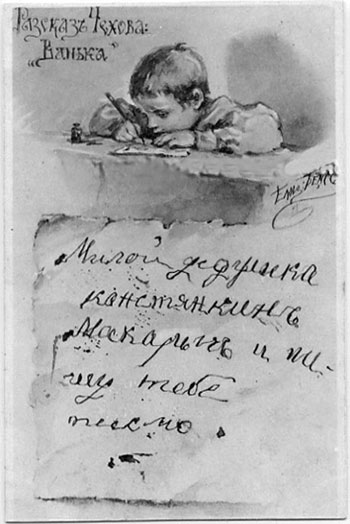 Разсказъ Чехова:
„Ванька“
Елис. Бемъ
Милой дедушка
канстянкинъ
Макарычъ и пи-
шу тебѣ
писмо.